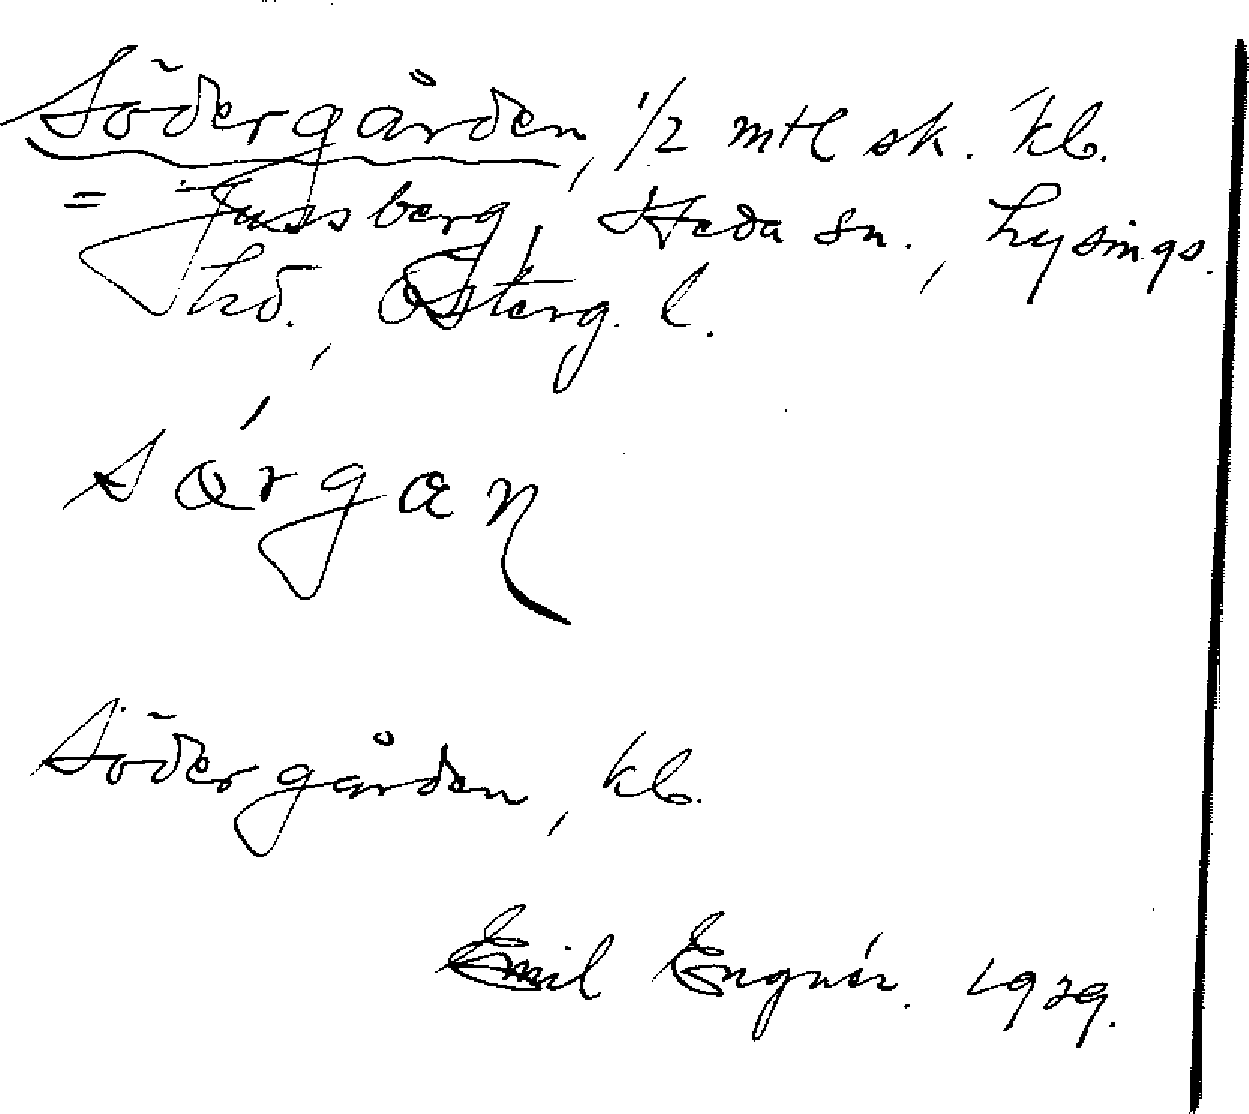 Södergården, 1/2 mtl sk. kb.
= Jussberg, Heda sn., Lysings
hd., Österg. l.
sǿrgan
Södergården, kb.
Emil Engnér. 1929.